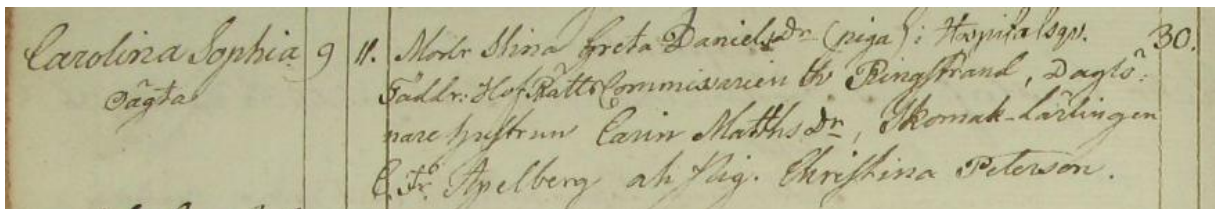 Carolina Sophia 9 11. Modr Stina Greta Daniels Dr (piga) i Hospitalsqv. 30.
oägta Faddr: HofRätts Commissarien Hr Ringstrand, Daglö-
nare hustrun Carin Matths Dr, Skomak-Lärlingen
C. Fr. Apelberg och Pig. Christina Peterson.